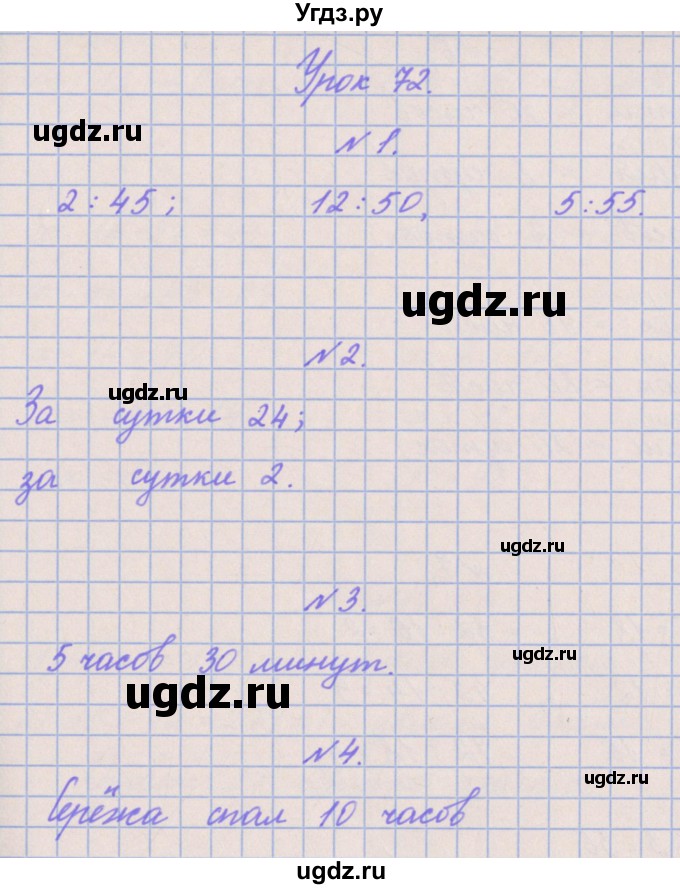 Угдз.ру
Урок 72.
ugdz.ru
№ 1.
2 : 45 ; 12 : 50, 5 : 55.
ugdz.ru
№ 2.
ugdz.ru
За сутки 24 ;
за сутки 2.
ugdz.ru
№ 3.
5 часов 30 минут.
ugdz.ru
ugdz.ru
№ 4.
ugdz.ru
Серёжа спал 10 часов
ugdz.ru